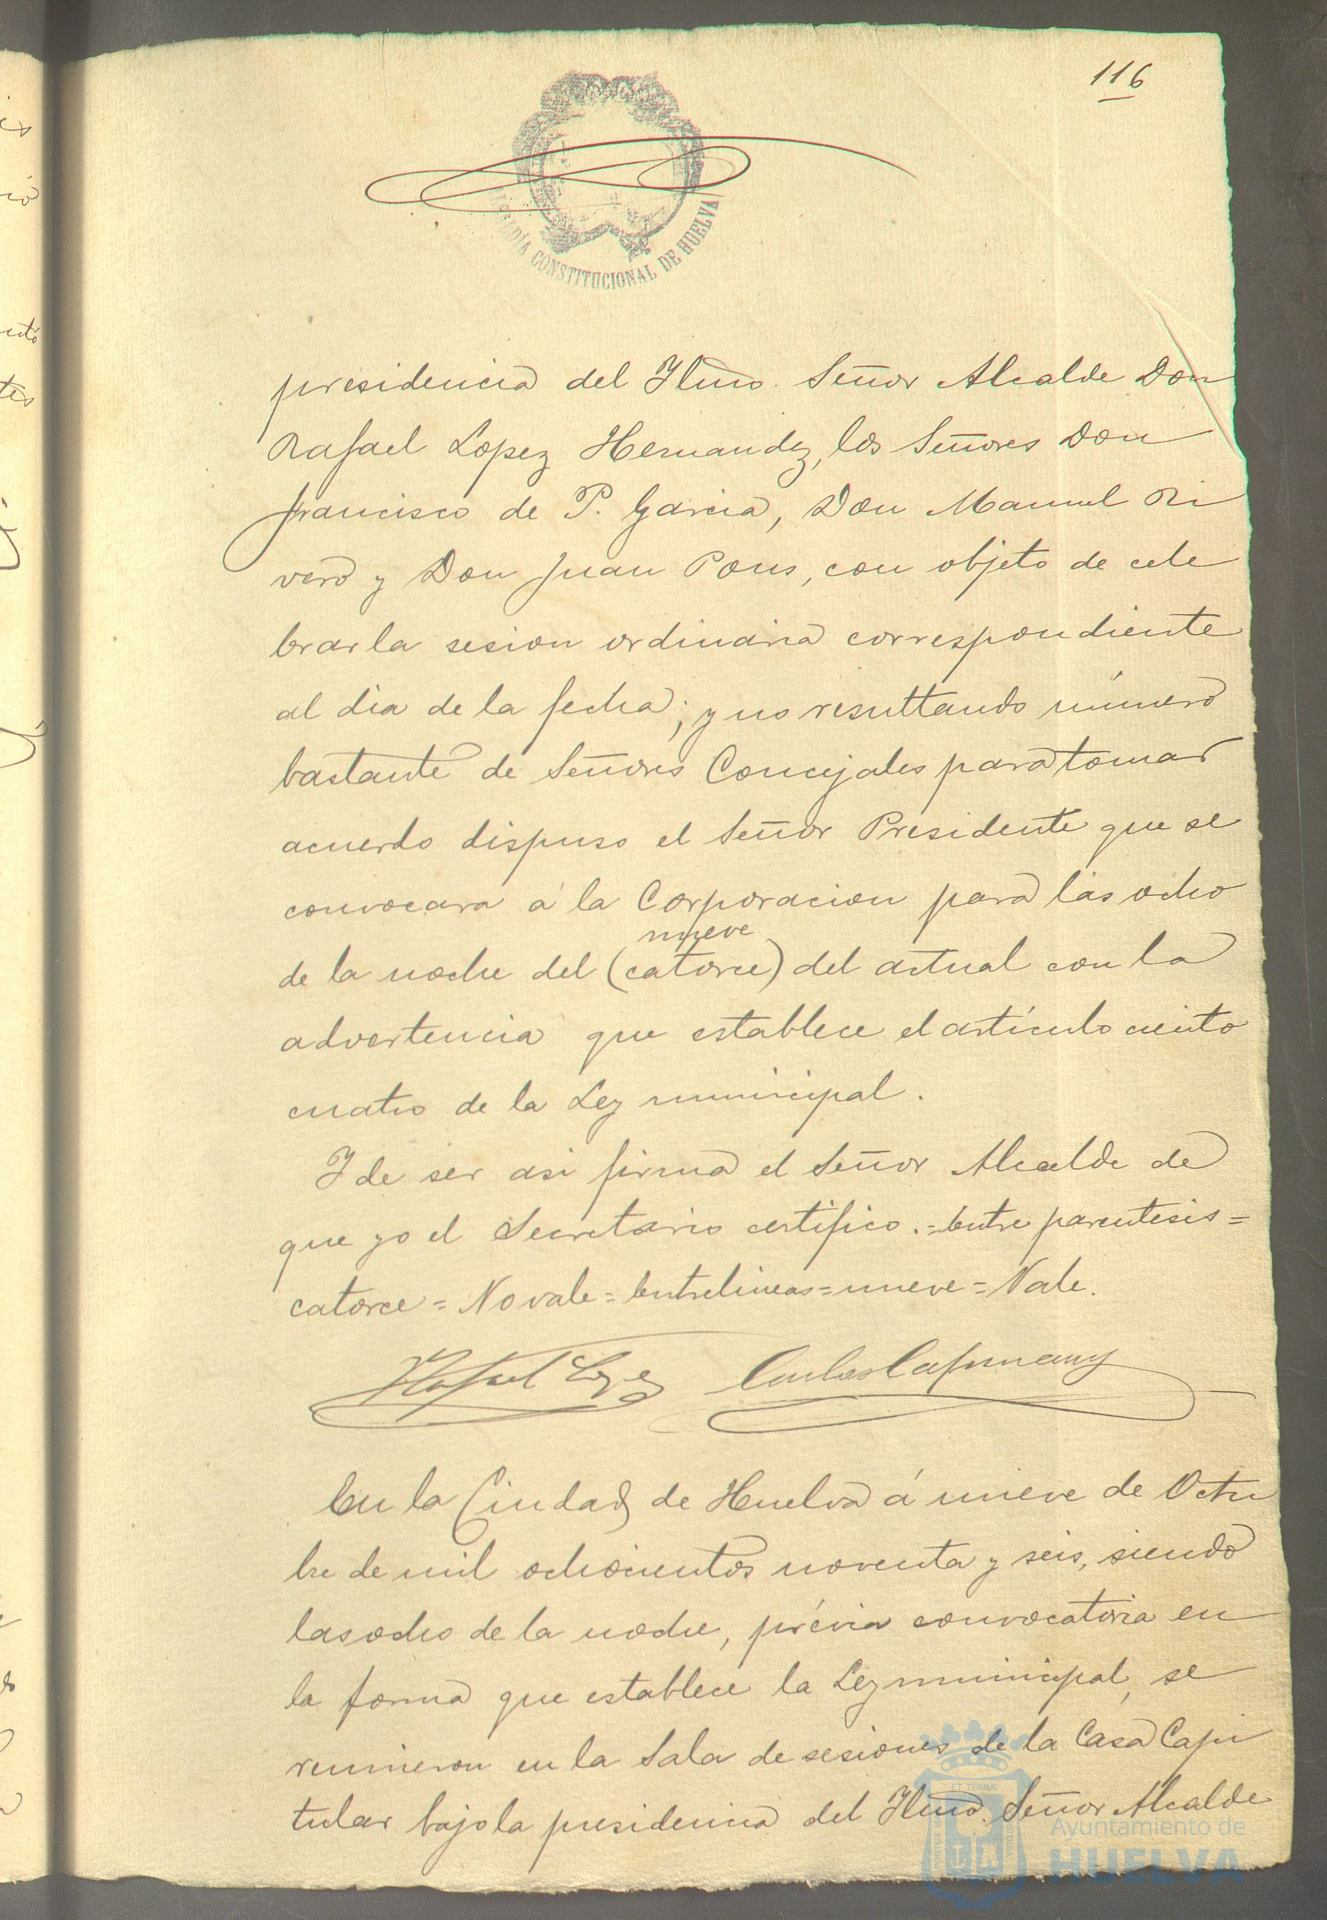 116
ALCALDÍA CONSTITUCIONAL DE HUELVA
presidencia del Ilmo. Señor Alcalde Don
Rafael Lopez Hernandez, los Señores Don
Francisco de P. Garcia, Don Manuel Ri
vero y Don Juan Pons, con objeto de cele
brar la sesion ordinaria correspondiente
al dia de la fecha; y no resultando número
bastante de Señores Concejales para tomar
acuerdo dispuso el Señor Presidente que se
convocara á la Corporacion para las ocho
nueve
de la noche del (catorce) del actual con la
advertencia que establece el artículo ciento
cuatro de la Ley municipal.
Y de ser asi firma el Señor Alcalde de
que yo el Secretario certifico.=Entre parentesis=
catorce=No vale=Entrelineas=nueve=Vale.
Rafael Lopez Carlos Capmany
En la Ciudad de Huelva á nueve de Octu
bre de mil ochocientos noventa y seis, siendo
las ocho de la noche, prévia convocatoria en
la forma que establece la Ley municipal, se
reunieron en la Sala de sesiones de la Casa Capi
tular bajo la presidencia del Ilmo. Señor Alcalde
ET TERRÆ
Ayuntamiento de
HUELVA